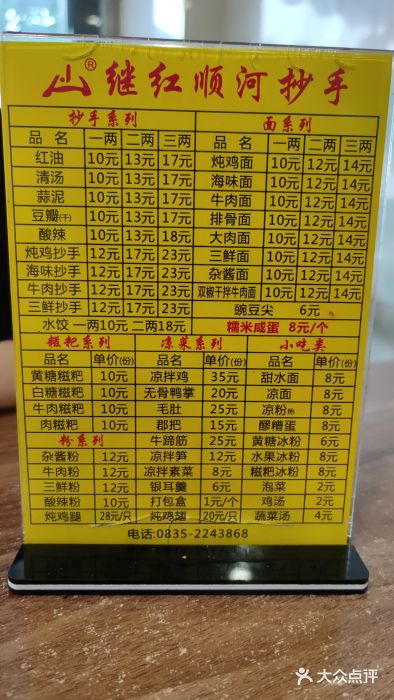 山®继红顺河抄手
抄手系列
品名 一两 二两 三两
红油 10元 13元 17元
清汤 10元 13元 17元
蒜泥 10元 13元 17元
豆瓣(干) 10元 13元 17元
酸辣 10元 13元 18元
炖鸡抄手 12元 17元 23元
海味抄手 12元 17元 23元
牛肉抄手 12元 17元 23元
三鲜抄手 12元 17元 23元
水饺 一两10元 二两18元
面系列
品名 一两 二两 三两
炖鸡面 10元 12元 14元
海味面 10元 12元 14元
牛肉面 10元 12元 14元
排骨面 10元 12元 14元
大肉面 10元 12元 14元
三鲜面 10元 12元 14元
杂酱面 10元 12元 14元
双椒干拌牛肉面 10元 12元 14元
豌豆尖 6元
糯米咸蛋 8元/个
糍粑系列
品名 单价(份)
黄糖糍粑 10元
白糖糍粑 10元
牛肉糍粑 10元
肉糍粑 10元
粉系列
杂酱粉 12元
牛肉粉 12元
三鲜粉 12元
酸辣粉 10元
炖鸡腿 28元/只
凉菜系列
品名 单价(份)
凉拌鸡 35元
无骨鸭掌 20元
毛肚 25元
郡把 15元
牛蹄筋 25元
凉拌笋 12元
凉拌素菜 8元
银耳羹 6元
打包盒 1元/个
炖鸡翅 20元/只
小吃类
品名 单价(份)
甜水面 8元
凉面 8元
凉粉热 8元
醪糟蛋 8元
黄糖冰粉 6元
水果冰粉 8元
糍粑冰粉 8元
泡菜 2元
鸡汤 2元
蔬菜汤 4元
电话:0835-2243868
大众点评